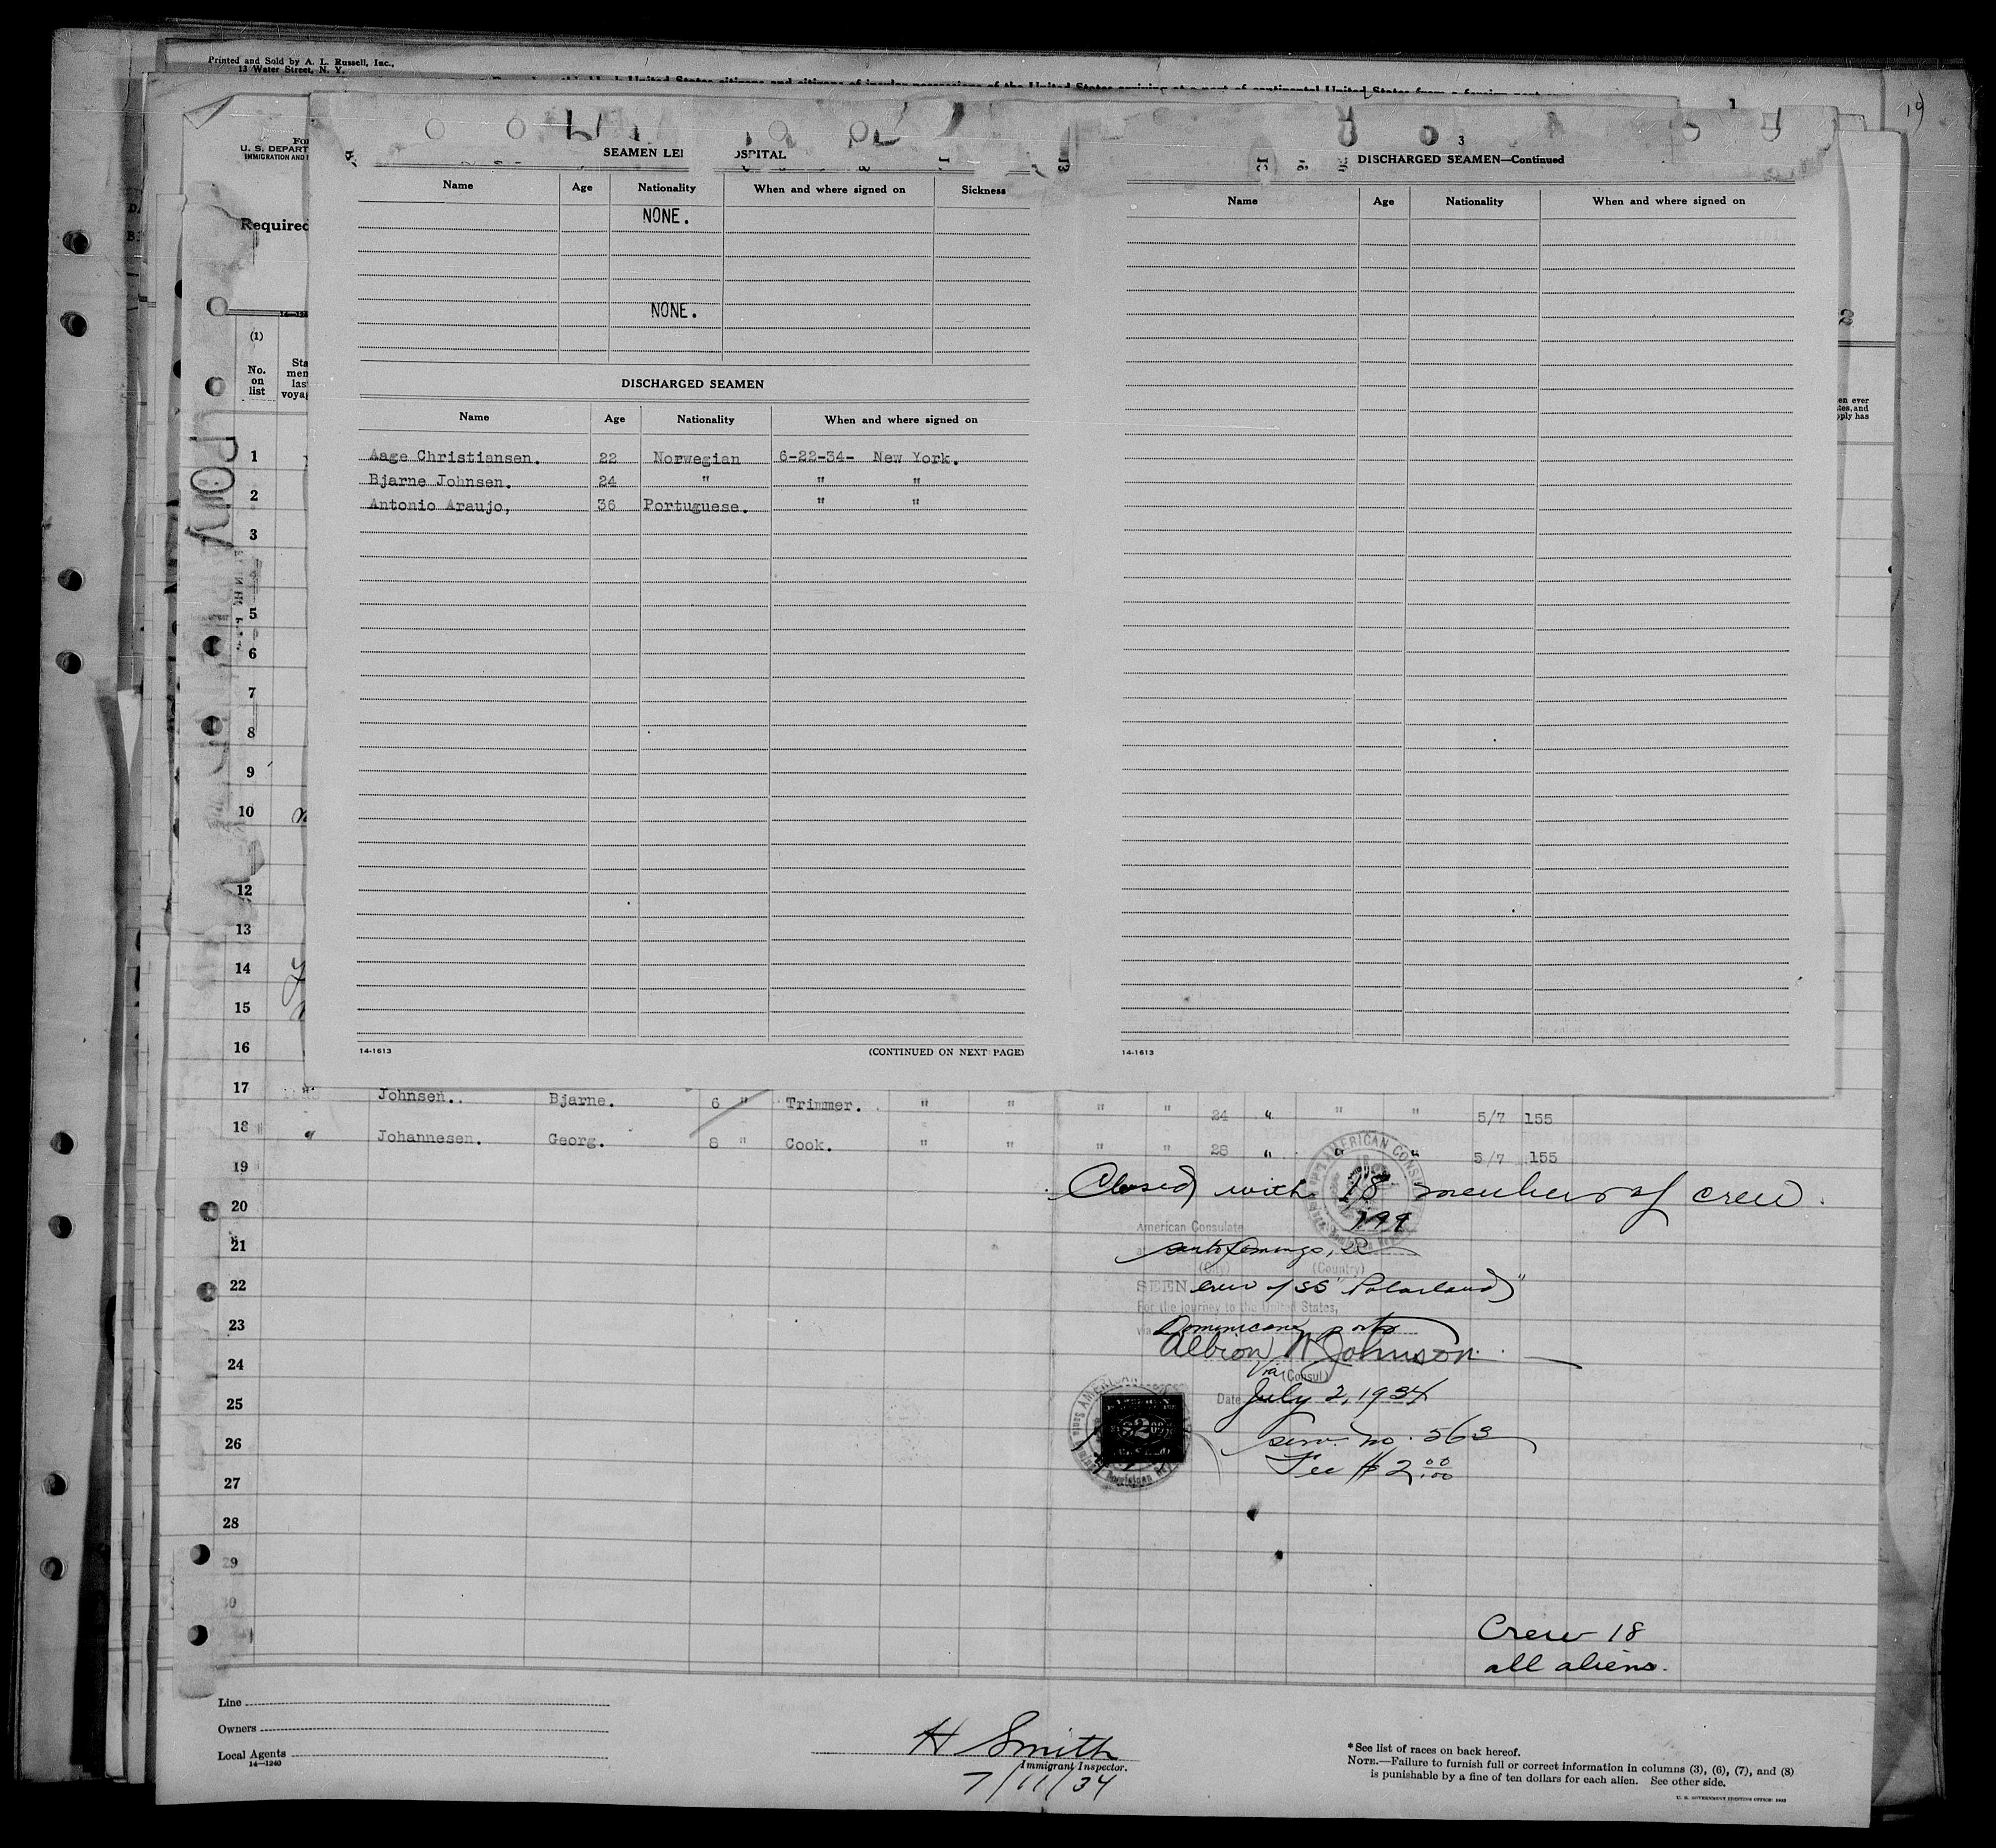 Printed and Sold by A. L. Russell, Inc.,
13 Water Street, N. Y.
U. S. DEPART
IMMIGRATION AND
Required
SEAMEN LE OSPITAL
Name Age Nationality When and where signed on Sickness
NONE.
NONE.
DISCHARGED SEAMEN
Name Age Nationality When and where signed on
Aage Christiansen. 22 Norwegian 6-22-34- New York.
Bjarne Johnsen. 24 " " "
Antonio Araujo, 36 Portuguese. " "
14-1613 (CONTINUED ON NEXT PAGE)
3
DISCHARGED SEAMEN—Continued
Name Age Nationality When and where signed on
14-1613
(1)
No.
on
list
Sta
men
las
voya
en ever
tes, and
pply has
1
2
3
5
6
7
8
9
10
12
13
14
15
16
17 " Johnsen. Bjarne. 6 " Trimmer. " " " " 24 " " " 5/7 155
18 " Johannesen. Georg. 8 " Cook. " " " " 28 " " " 5/7 155
19
Closed with 18 members of crew.
20
199
American Consulate
21
Santo Domingo, DR
(City) (Country)
22
SEEN crew of SS "Polarland"
For the journey to the United States,
23
via Dominican ports
Albion W Johnson
24
Vice (Consul)
25
Date July 2, 1934
26
Serv. no. 563
Fee $2 00/100
27
28
29
30
Crew 18
all aliens.
Line
Owners
Local Agents
14-1240
H Smith
Immigrant Inspector.
7/11/34
*See list of races on back hereof.
NOTE.—Failure to furnish full or correct information in columns (3), (6), (7), and (8)
is punishable by a fine of ten dollars for each alien. See other side.
U. S. GOVERNMENT PRINTING OFFICE